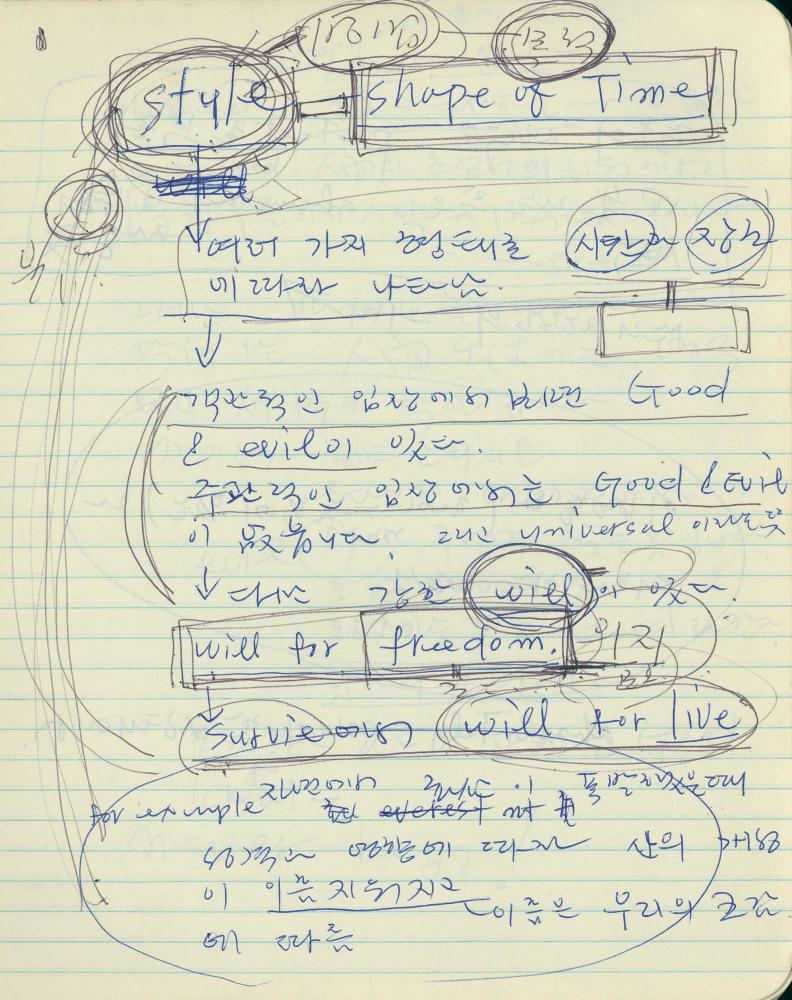 style shape of Time
여러 가지 형태로 시간과 장소
에 따라 나타남.
객관적인 입장에서 보면 Good
& evil이 있다.
주관적인 입장에서는 Good & Evil
이 없습니다. 그리고 universal
다만 강한 will이 있다.
will for freedom. 의지
Survie에서 will for live
자연에서 화산이 폭발했을때
for example everest mt
영향에 따라 산의
이 이름 지워지고
이름은 우리의
에 따름